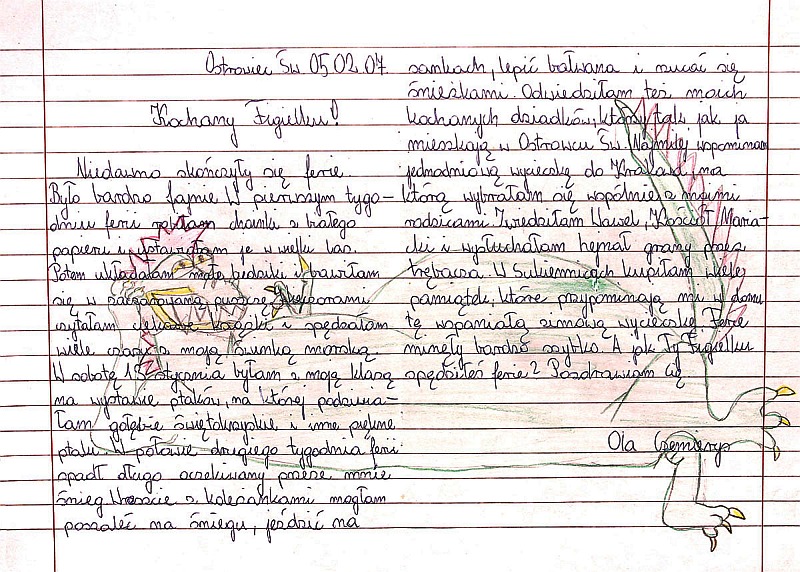 Ostrowiec Św. 05.02.07.
Kochany Figielku!
Niedawno skończyły się ferie.
Było bardzo fajnie. W pierwszym tygo-
dniu ferii robiłam domki z białego
papieru i ustawiałam je w wielki las.
Potem układałam małe ludziki i bawiłam
się w zaczarowaną puszczę z
czytałam ciekawe książki i spędzałam
wiele czasu z moją świnką morską.
W sobotę stycznia byłam z moją klasą
na wystawie ptaków, na której podziwia-
łam gołębie świętokrzyskie i inne piękne
ptaki. W połowie drugiego tygodnia ferii
spadł długo oczekiwany przeze mnie
śnieg. Wreszcie z koleżankami mogłam
poszaleć na śniegu, jeździć na
sankach, lepić bałwana i rzucać się
śnieżkami. Odwiedziłam też moich
kochanych dziadków, którzy tak jak ja
mieszkają w Ostrowcu Św. Najmilej wspominam
jednodniową wycieczkę do Krakowa, na
którą wybrałam się wspólnie z moimi
rodzicami. Zwiedziłam Wawel, Kościół Maria-
cki i wysłuchałam hejnał grany przez
trębacza. W Sukiennicach kupiłam wiele
pamiątek, które przypominają mi w domu
tę wspaniałą zimową wycieczkę. Ferie
minęły bardzo szybko. A jak Ty Figielku
spędziłeś ferie? Pozdrawiam Cię
Ola